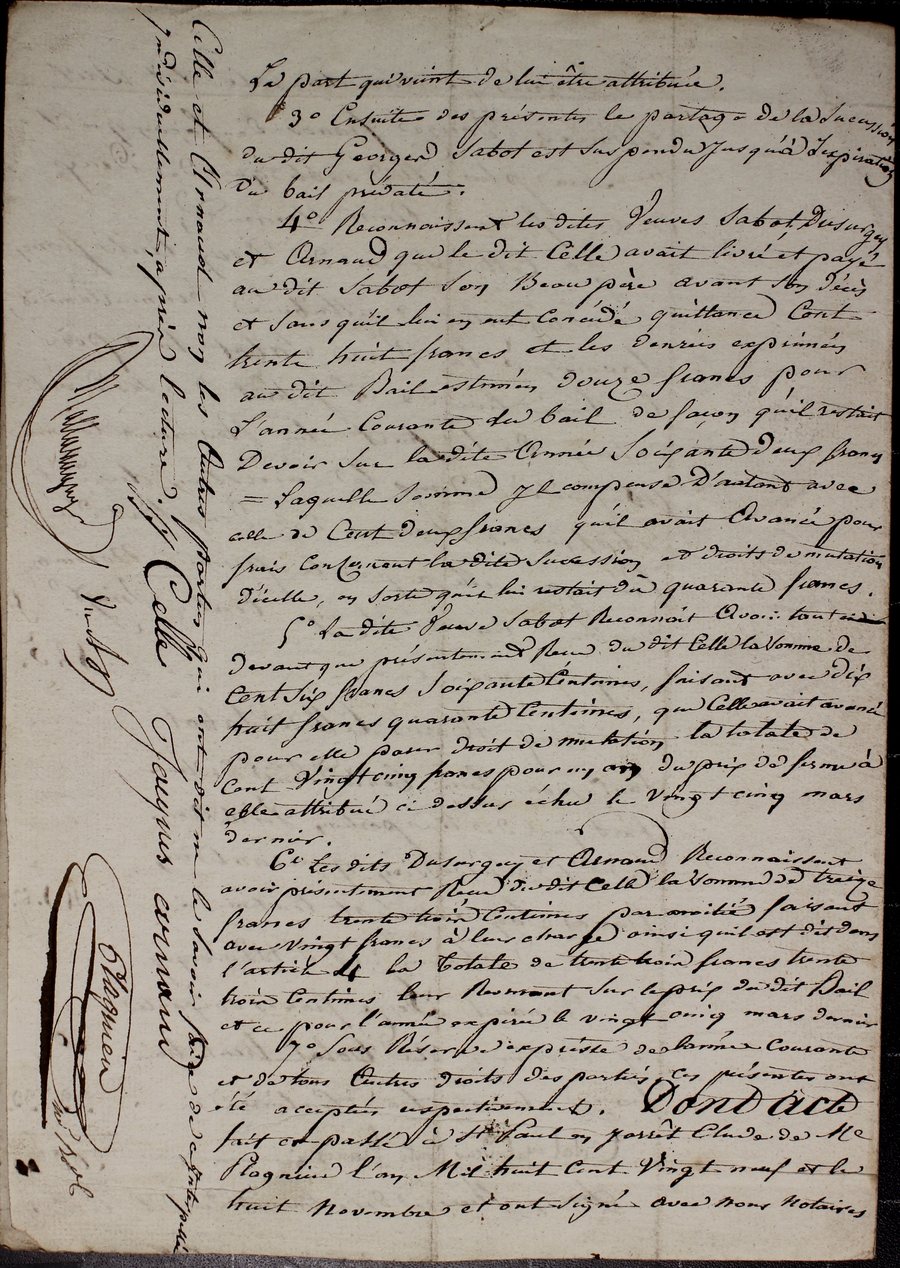 La part qui vient de lui être attribuée.
3o Ensuite des présentes le partage de la Sucession
du dit Georges Sabot est suspendu jusqu'à l'expiration
du bail prédaté.
4o Reconnoissent les dites Veuves Sabot, Dusurgey
et Arnaud que le dit Celle avait livré et payé
au dit Sabot son Beau père avant son décès
et sans qu'il lui en eut concédé quittance Cent
trente huit francs et les denrées exprimées
au dit Bail estimées douze francs pour
L'année Courante du bail de façon qu'il restait
Devoir sur la dite Année Soixante deux francs
= Laquelle Somme il compense D'autant avec
celle de Cent deux francs qu'il avait Avancée pour
frais concernant la dite Sucession et droits de mutation
d'icelle, en sorte qu'il lui restait dû quarante francs.
5o La dite Veuve Sabot Reconnait Avoir tout
devant que présentement Reçu du dit Celle la Somme de
Cent Six francs Soixante Centimes, faisant avec dix
huit francs quarante Centimes, que Celle avait avancé
pour elle pour droit de mutation la totale de
Cent Vingt cinq francs pour un an du prix de ferme à
elle attribué ci dessus échu le Vingt cinq mars
dernier.
6o Les dits Dusurgey et Arnaud Reconnaissent
avoir présentement Reçu du dit Celle la Somme de treize
francs trente trois Centimes par moitié faisant
avec vingt francs à leur charge ainsi qu'il est dit dans
l'article 4 la Totale de trente trois francs trente
trois Centimes leur Revenant sur le prix du dit Bail
et ce pour l'année expirée le vingt cinq mars dernier
7o Sous Réserve expresse de l'année Courante
et de tous Autres droits des parties, ces présentes ont
été acceptées respectivement. Dont acte
fait et passé à St Paul en Jarrêt Etude de Me
Plagnieu l'an Mil huit Cent Vingt neuf et le
huit Novembre et ont signé avec nous notaires
Celle et Arnaud non les Autres parties qui ont dit ne le Savoir faire de ce interpellées
individuellement, après lecture.
Celle Jacques arnaud
Plagnieu